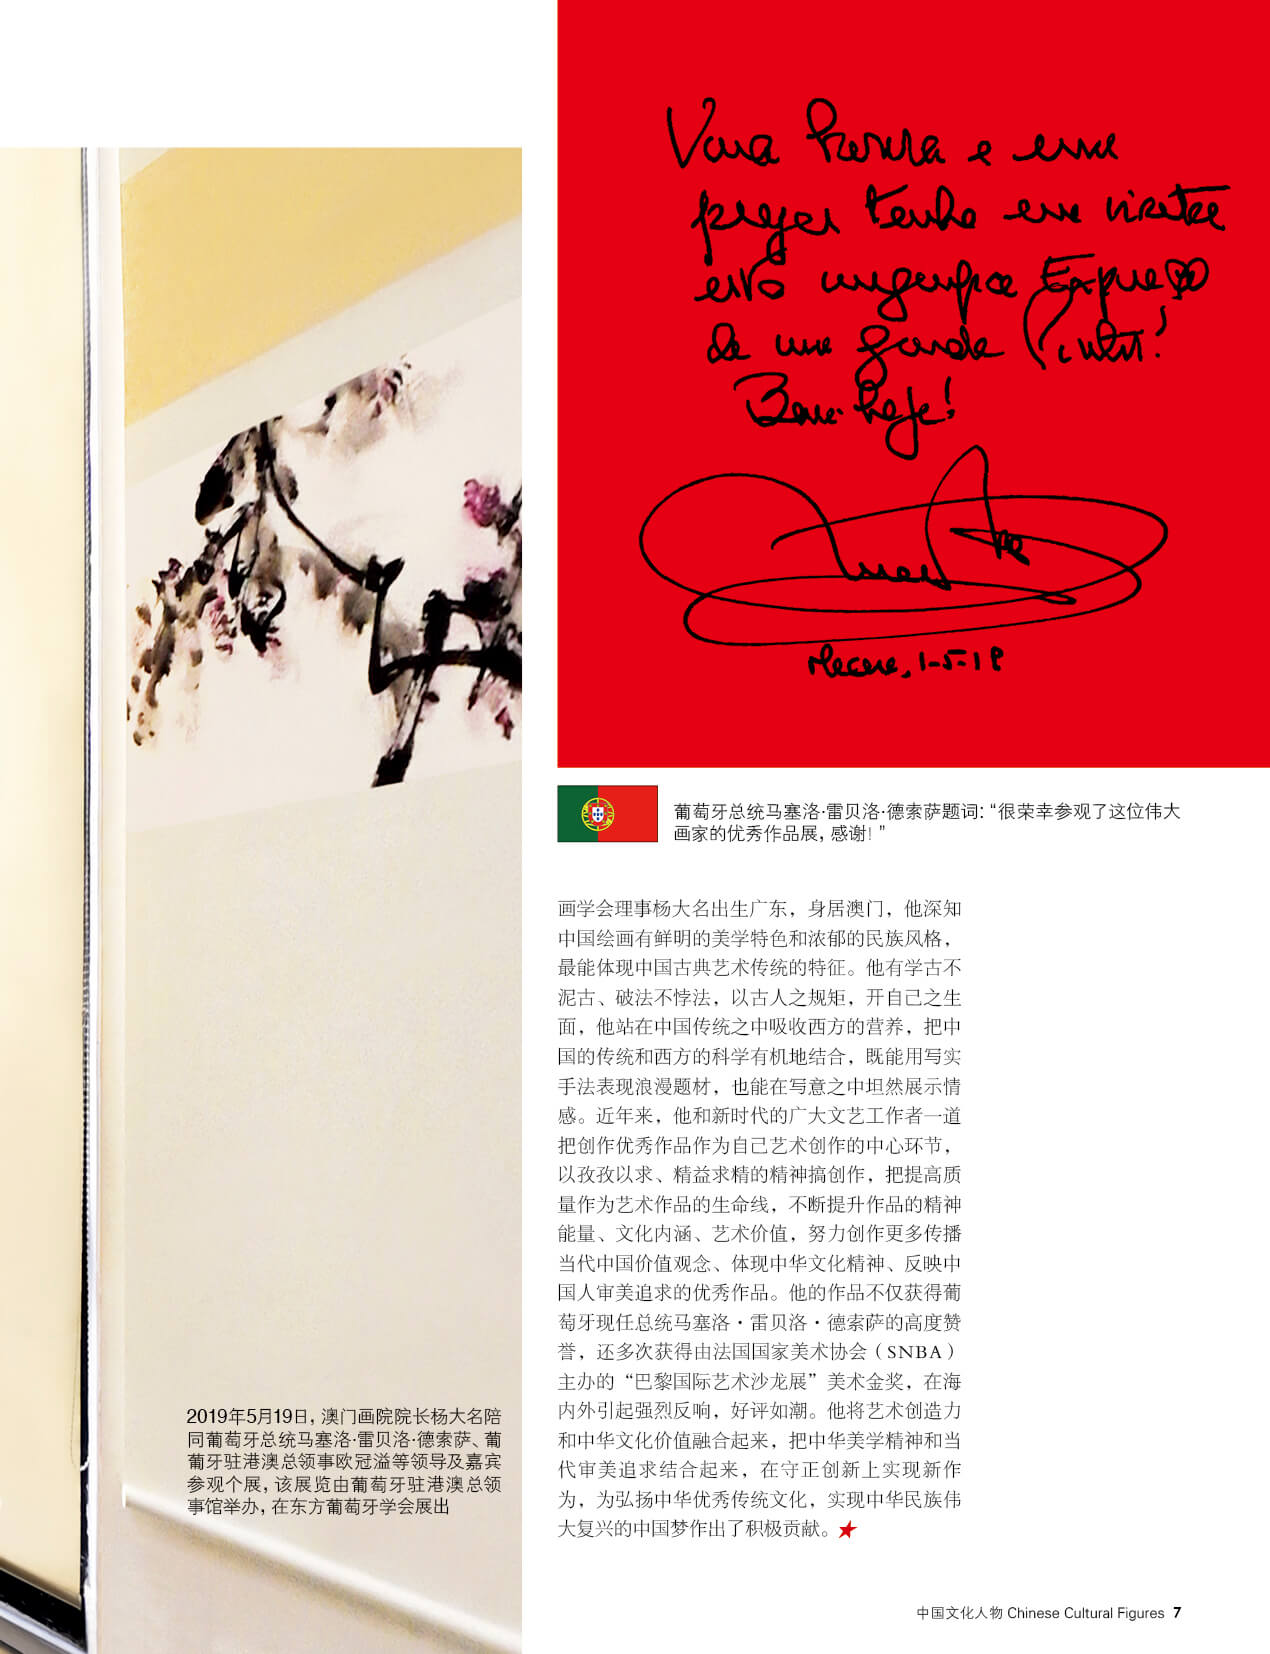 e
tenho
de uma grande
1-5-19
葡萄牙总统马塞洛·雷贝洛·德索萨题词：“很荣幸参观了这位伟大
画家的优秀作品展，感谢！”
画学会理事杨大名出生广东，身居澳门，他深知
中国绘画有鲜明的美学特色和浓郁的民族风格，
最能体现中国古典艺术传统的特征。他有学古不
泥古、破法不悖法，以古人之规矩，开自己之生
面，他站在中国传统之中吸收西方的营养，把中
国的传统和西方的科学有机地结合，既能用写实
手法表现浪漫题材，也能在写意之中坦然展示情
感。近年来，他和新时代的广大文艺工作者一道
把创作优秀作品作为自己艺术创作的中心环节，
以孜孜以求、精益求精的精神搞创作，把提高质
量作为艺术作品的生命线，不断提升作品的精神
能量、文化内涵、艺术价值，努力创作更多传播
当代中国价值观念、体现中华文化精神、反映中
国人审美追求的优秀作品。他的作品不仅获得葡
萄牙现任总统马塞洛·雷贝洛·德索萨的高度赞
誉，还多次获得由法国国家美术协会（SNBA）
主办的“巴黎国际艺术沙龙展”美术金奖，在海
内外引起强烈反响，好评如潮。他将艺术创造力
和中华文化价值融合起来，把中华美学精神和当
代审美追求结合起来，在守正创新上实现新作
为，为弘扬中华优秀传统文化，实现中华民族伟
大复兴的中国梦作出了积极贡献。
2019年5月19日，澳门画院院长杨大名陪
同葡萄牙总统马塞洛·雷贝洛·德索萨、葡
葡牙驻港澳总领事欧冠溢等领导及嘉宾
参观个展，该展览由葡萄牙驻港澳总领
事馆举办，在东方葡萄牙学会展出
中国文化人物 Chinese Cultural Figures 7